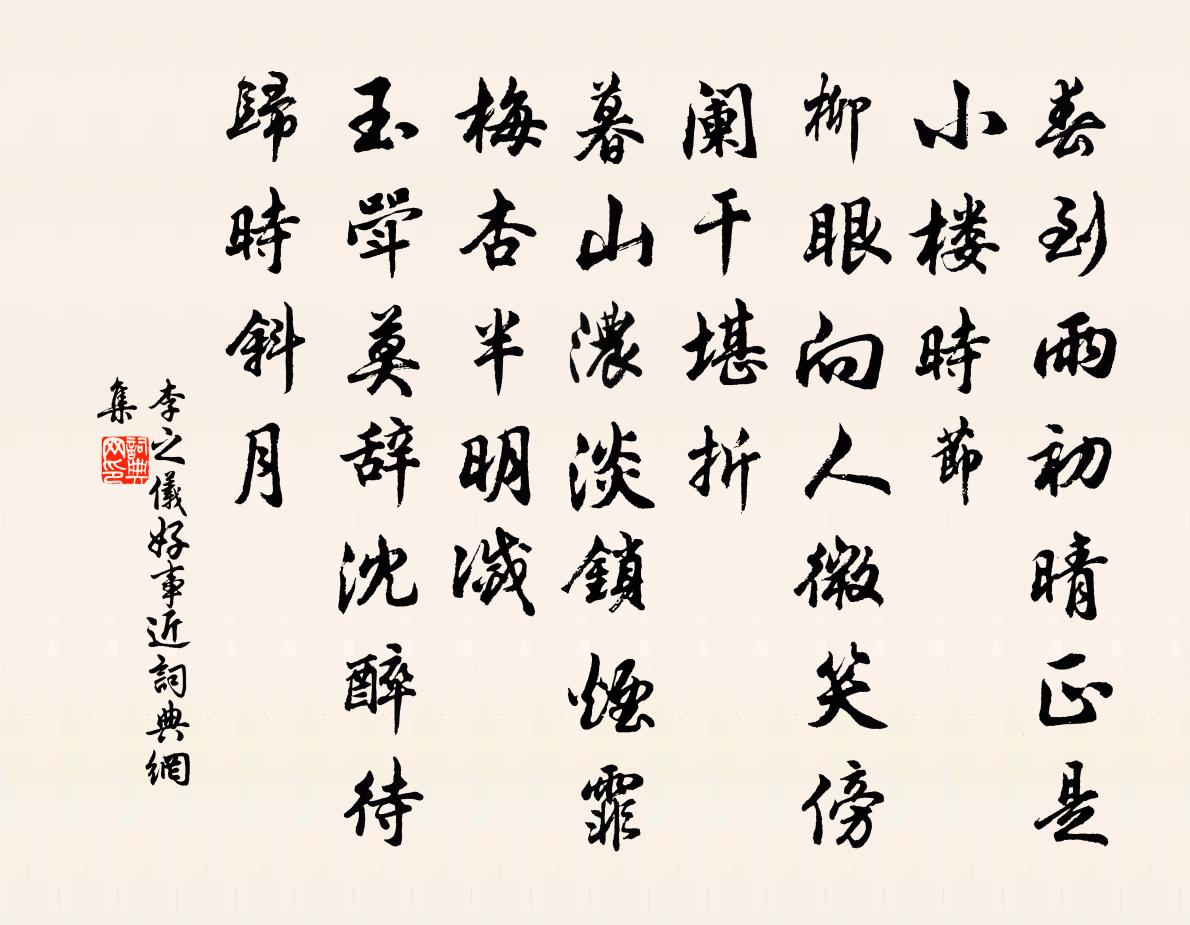 春到雨初晴正是
小楼時節
柳眼向人微笑傍
阑干堪折
暮山濃淡鎖煙霏
梅杏半明滅
玉斝莫辞沈醉待
歸時斜月
李之儀好事近詞典網
集
詞典
网印